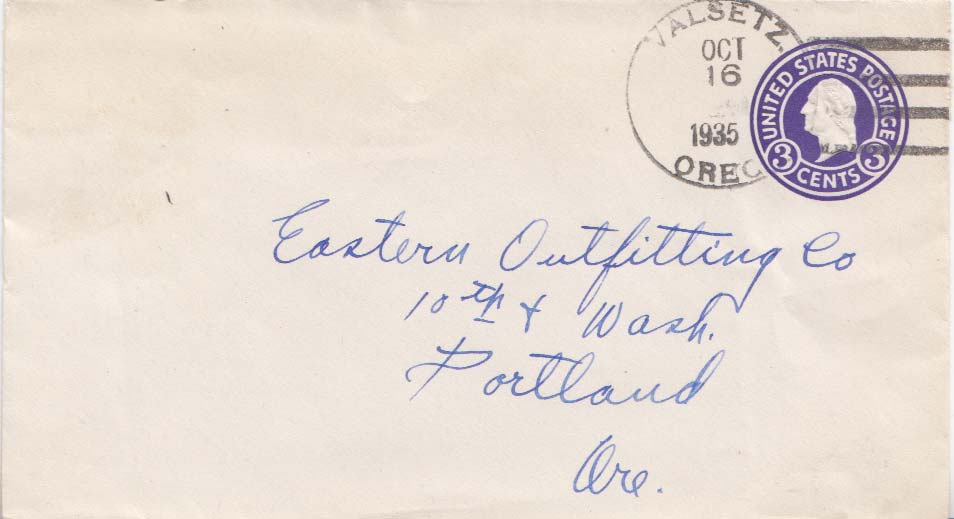 VALSETZ,
OCT
16
1935
OREG
UNITED STATES POSTAGE
3 CENTS 3
Eastern Outfitting Co
10th & Wash.
Portland
Ore.